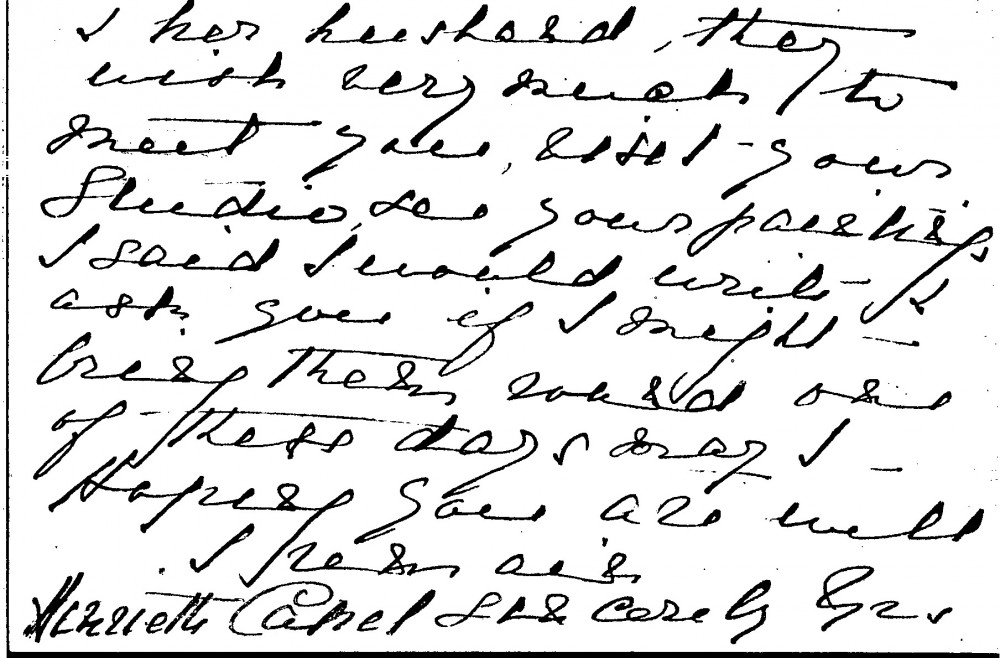 & her husband, they
wish very much to
meet you, visit your
Studio, see your paintings
I said I would write &
ask you if I might
bring them round one
of these days may I
Hoping you are well
I remain
Sincerely Yrs